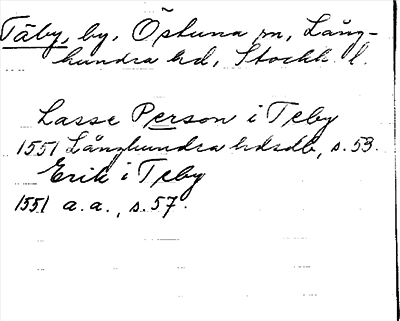 Täby, by, Östuna sn, Lång-
hundra hd, Stockh. l.
Lasse Person i Teby
1551 Långhundra hdsdb, s. 53.
Erik i Teby
1551 a. a., s. 57.